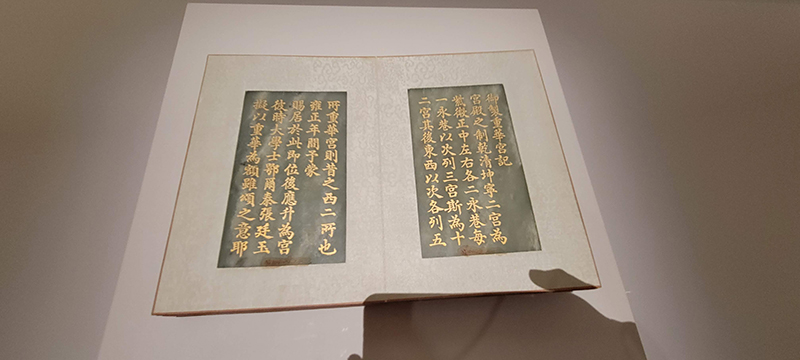 御製重華宮記
宮殿之制乾清坤寧二宮為
紫微正中左右各二永巷每
一永巷以次列三宮斯為十
二宮其後東西以次各列五
所重華宮則昔之西二所也
雍正年間予蒙
賜居於此即位後應升為宮
彼時大學士鄂爾泰張廷玉
擬以重華為額雖頌之意耶